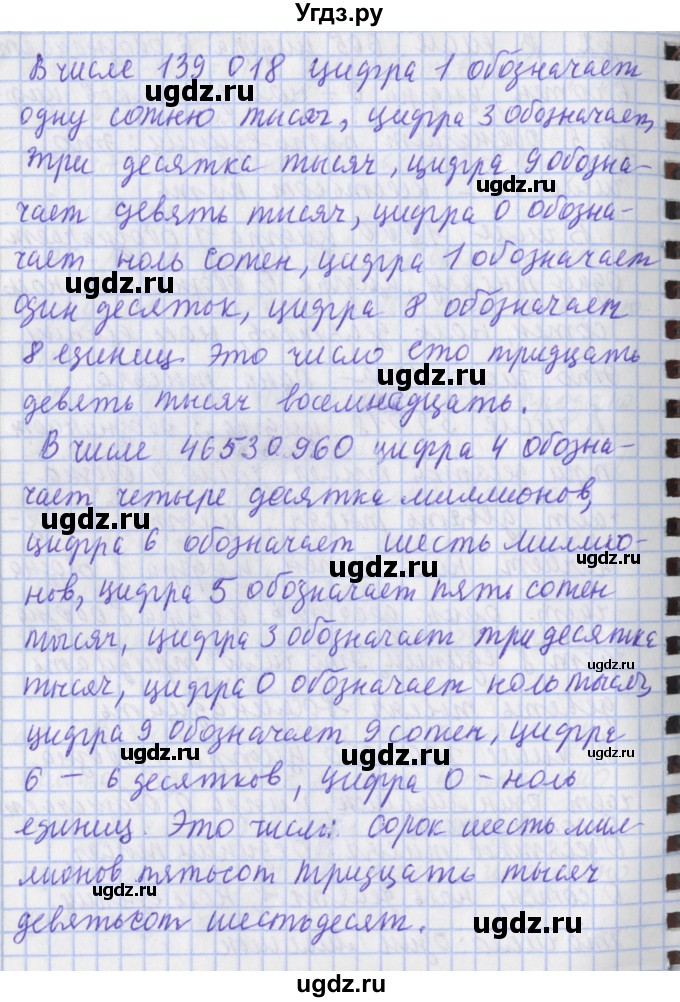 Угдз.ру
В числе 139 018 цифра 1 обозначает
ugdz.ru
одну сотню тысяч, цифра 3 обозначает,
три десятка тысяч, цифра 9 обозна-
ugdz.ru
чает девять тысяч, цифра 0 обозна-
чает ноль сотен, цифра 1 обозначает
ugdz.ru
один десяток, цифра 8 обозначает
8 единиц. Это число сто тридцать
ugdz.ru
девять тысяч восемнадцать.
В числе 46530960 цифра 4 обозна-
чает четыре десятка миллионов,
ugdz.ru
цифра 6 обозначает шесть миллио-
ugdz.ru
нов, цифра 5 обозначает пять сотен
тысяч, цифра 3 обозначает три десятка
ugdz.ru
тысяч, цифра 0 обозначает ноль тысяч,
цифра 9 обозначает 9 сотен, цифра
ugdz.ru
6 – 6 десятков, цифра 0 – ноль
единиц. Это число: сорок шесть мил-
лионов пятьсот тридцать тысяч
ugdz.ru
девятьсот шестьдесят.
ugdz.ru
ugdz.ru